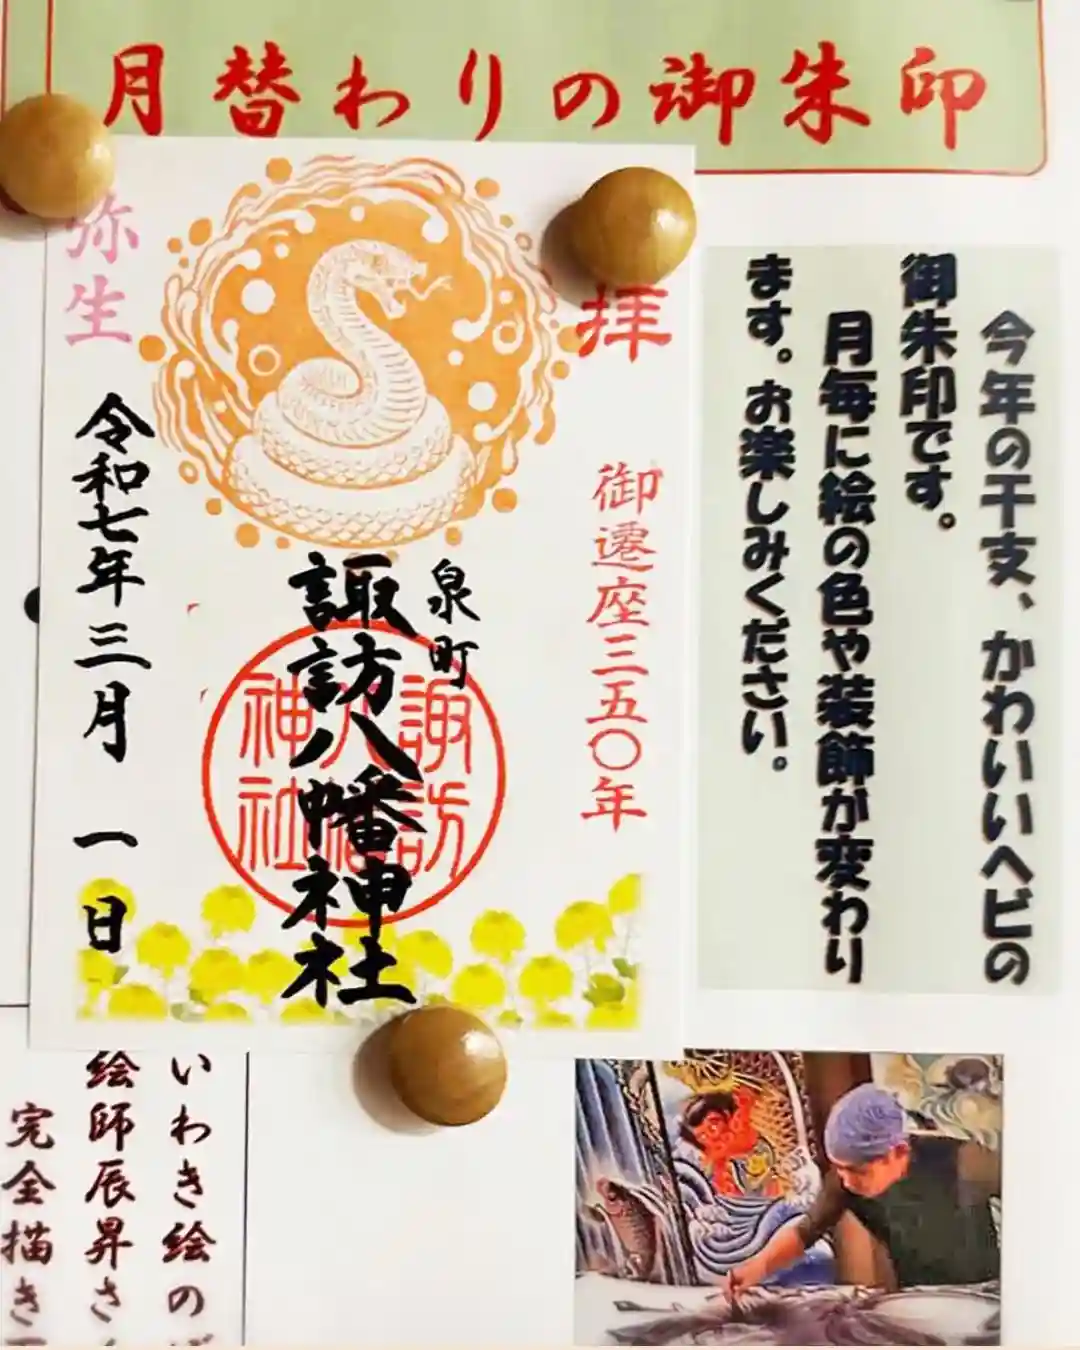 月替わりの御朱印
今年の干支、かわいいヘビの
御朱印です。
月毎に絵の色や装飾が変わり
ます。お楽しみください。
拝
御遷座三五〇年
泉町
諏訪八幡神社
諏訪
八幡
神社
弥生
令和七年三月 一日
いわき絵の
絵師辰昇さ
完全描き